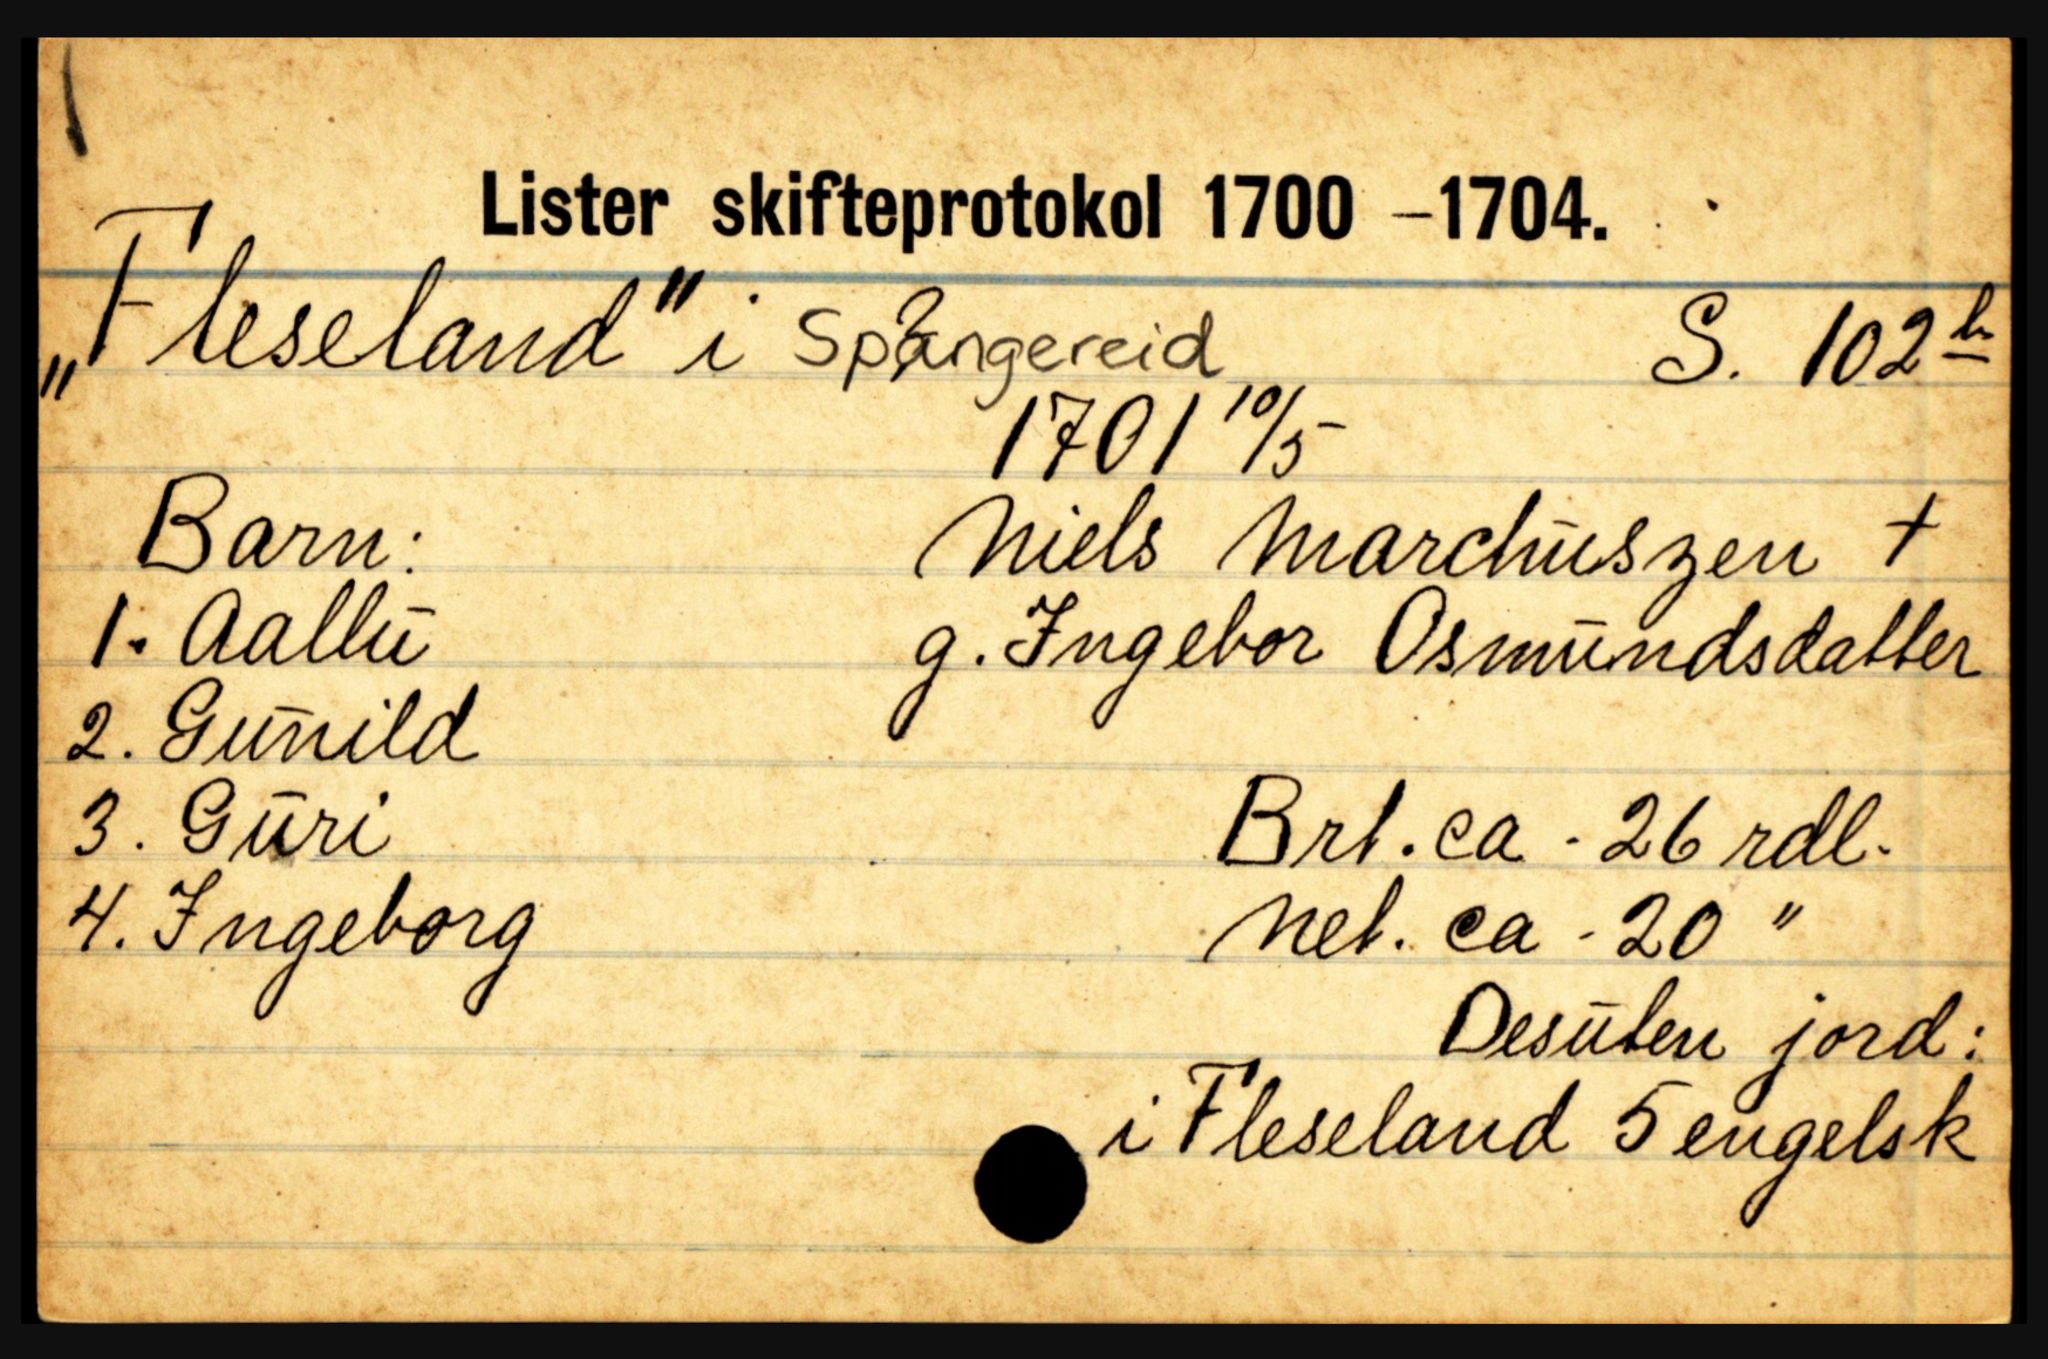 Lister skifteprotokol 1700 – 1704.
„Fleseland" i Spangereid S. 102 b
1701 10/5
Barn: Niels Marchuszen +
1. Aallu g. Ingebor Osmundsdatter
2. Gunild
3. Guri Brt. ca. 26 rdl.
4. Ingeborg Net. ca. 20 "
Desuten jord:
i Fleseland 5 engelsk